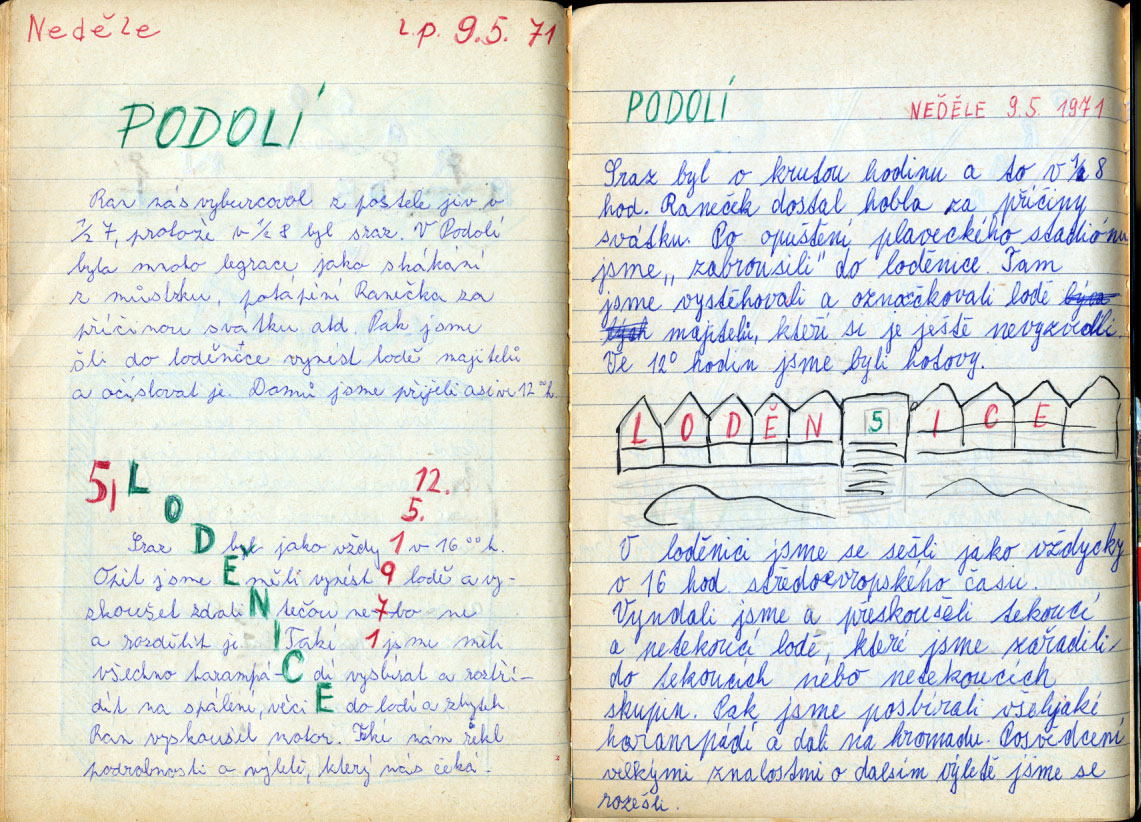 Neděle l.p. 9.5. 71
PODOLÍ
Ran nás vyburcoval z postele jiv v
1/2 7, protože v 1/2 8 byl sraz. V Podolí
byla moto legrace, jako skákání
z můstku, potápění Ranečka za
příčinou svátku atd. Pak jsme
šli do loděnice vynést lodě majitelů
a očíslovat je. Domů jsme přijeli asi ve 12 00 h.
5, LODĚNICE 12.
5.
1971
Sraz byl jako vždy v 16 00 h.
Opět jsme měli vynést lodě a vy-
zkoušet zdali tečou nebo ne
a rozdělit je. Také jsme měli
všechno harampá- dí vysbírat a roztří-
dit na spálení, věci do lodí a zbytek
Ran vyzkoušel motor. Také nám řekl
podrobnosti o výletě, který nás čeká.
PODOLÍ NEĎĚLE 9.5. 1971
Sraz byl v krutou hodinu a to v 1/2 8
hod. Raneček dostal hobla za příčiny
svátku. Po opuštění plaveckého stadiónu
jsme „zabrousili" do loděnice. Tam
jsme vystěhovali a označkovali lodě
majitelů, kteří si je ještě nevyzvedli.
Ve 12 0 hodin jsme byli hotovy.
LODĚN 5 ICE
V loděnici jsme se sešli jako vždycky
v 16 hod. středoevropského času.
Vyndali jsme a přeskoušeli tekoucí
a netekoucí lodě, které jsme zařadili
do tekoucích nebo netekoucích
skupin. Pak jsme posbírali všelijaké
harampádí a dali na hromadu. Posvědcení
velkými znalostmi o dalsím výletě jsme se
rozešli.